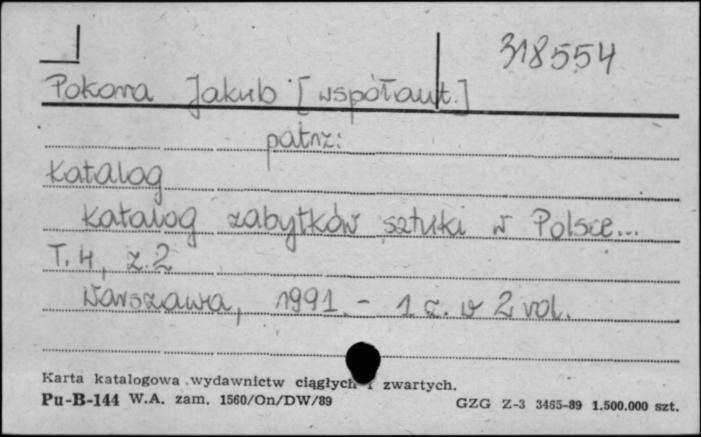 318554
Pokora Jakub [współaut.]
patrz:
Katalog
Katalog zabytków sztuki w Polsce...
T. 4, z. 2
Warszawa, 1991. - 1 z. w 2 vol.
Karta katalogowa wydawnictw ciągłych i zwartych.
Pu-B-144 W.A. zam. 1560/On/DW/89
GZG Z-3 3465-89 1.500.000 szt.